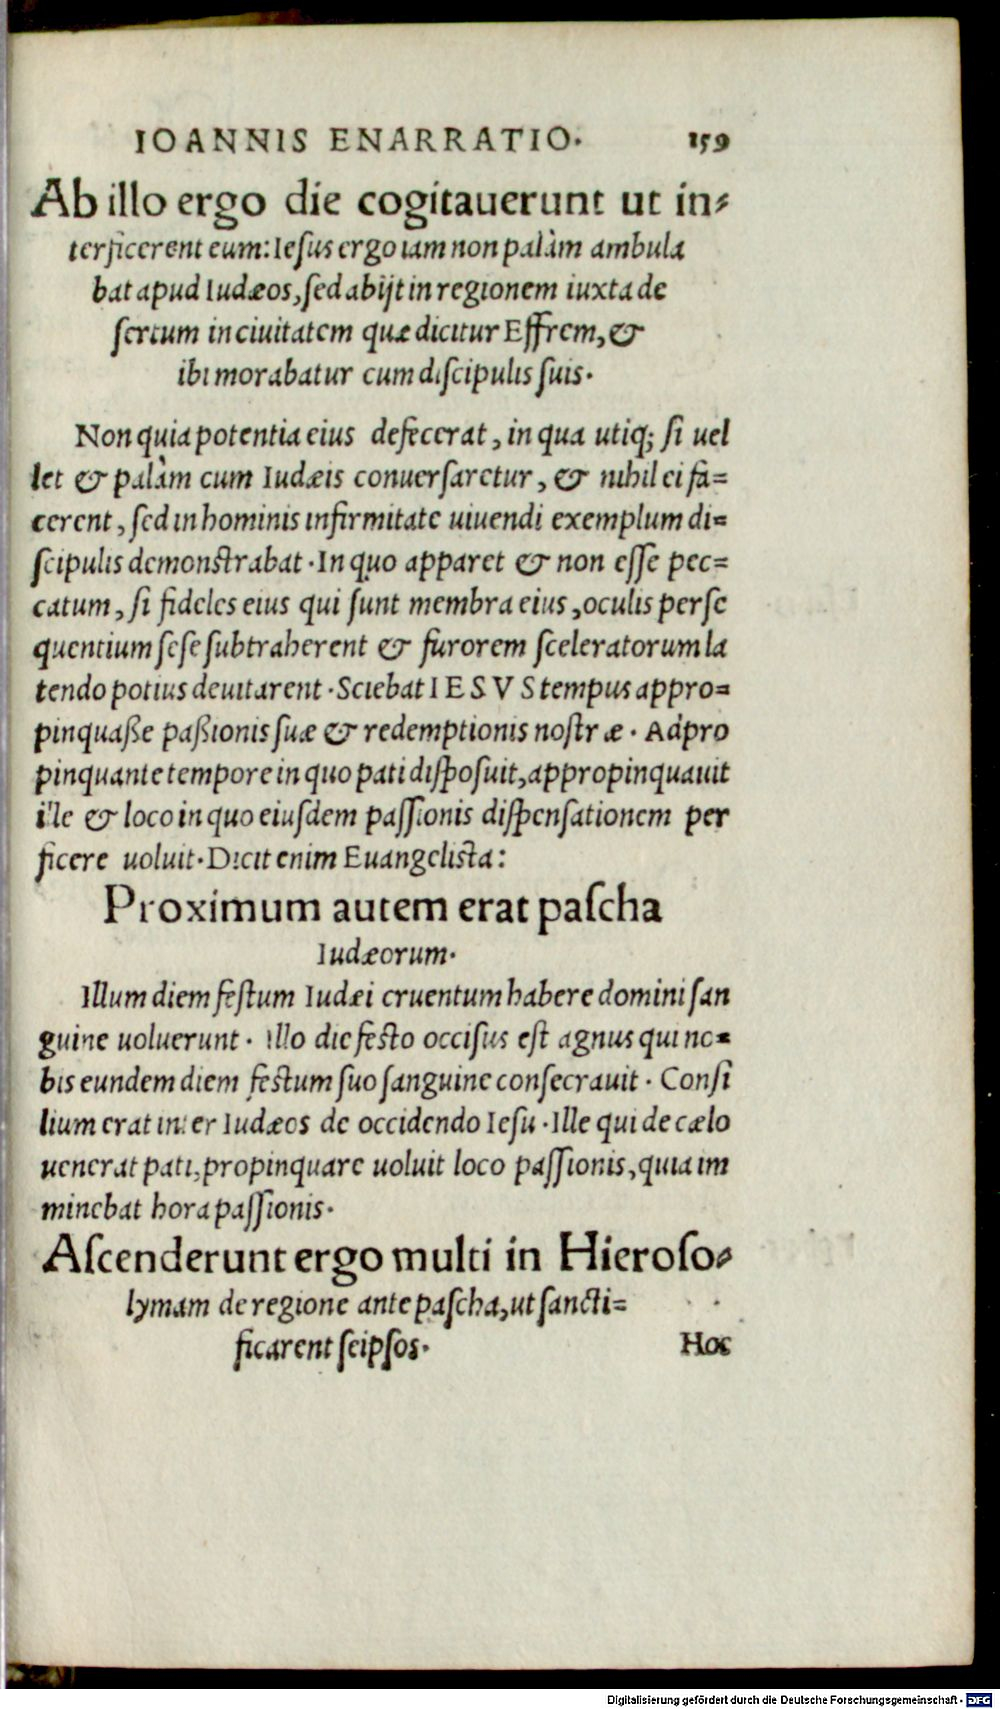 IOANNIS ENARRATIO. 159
Ab illo ergo die cogitauerunt ut in-
terficerent eum: Iesus ergo iam non palàm ambula
bat apud Iudæos, sed abijt in regionem iuxta de
sertum in ciuitatem quæ dicitur Effrem, &
ibi morabatur cum discipulis suis.
Non quia potentia eius defecerat, in qua utiq; si uel
let & palàm cum Iudæis conuersaretur, & nihil ei fa=
cerent, sed in hominis infirmitate uiuendi exemplum di=
scipulis demonstrabat. In quo apparet & non esse pec=
catum, si fideles eius qui sunt membra eius, oculis perse
quentium sese subtraherent & furorem sceleratorum la
tendo potius deuitarent. Sciebat IESVS tempus appro=
pinquaße paßionis suæ & redemptionis nostræ. Adpro
pinquante tempore in quo pati disposuit, appropinquauit
ille & loco in quo eiusdem passionis dispensationem per
ficere uoluit. Dicit enim Euangelista:
Proximum autem erat pascha
Iudæorum.
Illum diem festum Iudæi cruentum habere domini san
guine uoluerunt. Illo die festo occisus est agnus qui no=
bis eundem diem festum suo sanguine consecrauit. Consi
lium erat inter Iudæos de occidendo Iesu. Ille qui de cælo
uenerat pati, propinquare uoluit loco passionis, quia im
minebat hora passionis.
Ascenderunt ergo multi in Hieroso-
lymam de regione ante pascha, ut sancti=
ficarent seipsos. Hoc
Digitalisierung gefördert durch die Deutsche Forschungsgemeinschaft - DFG